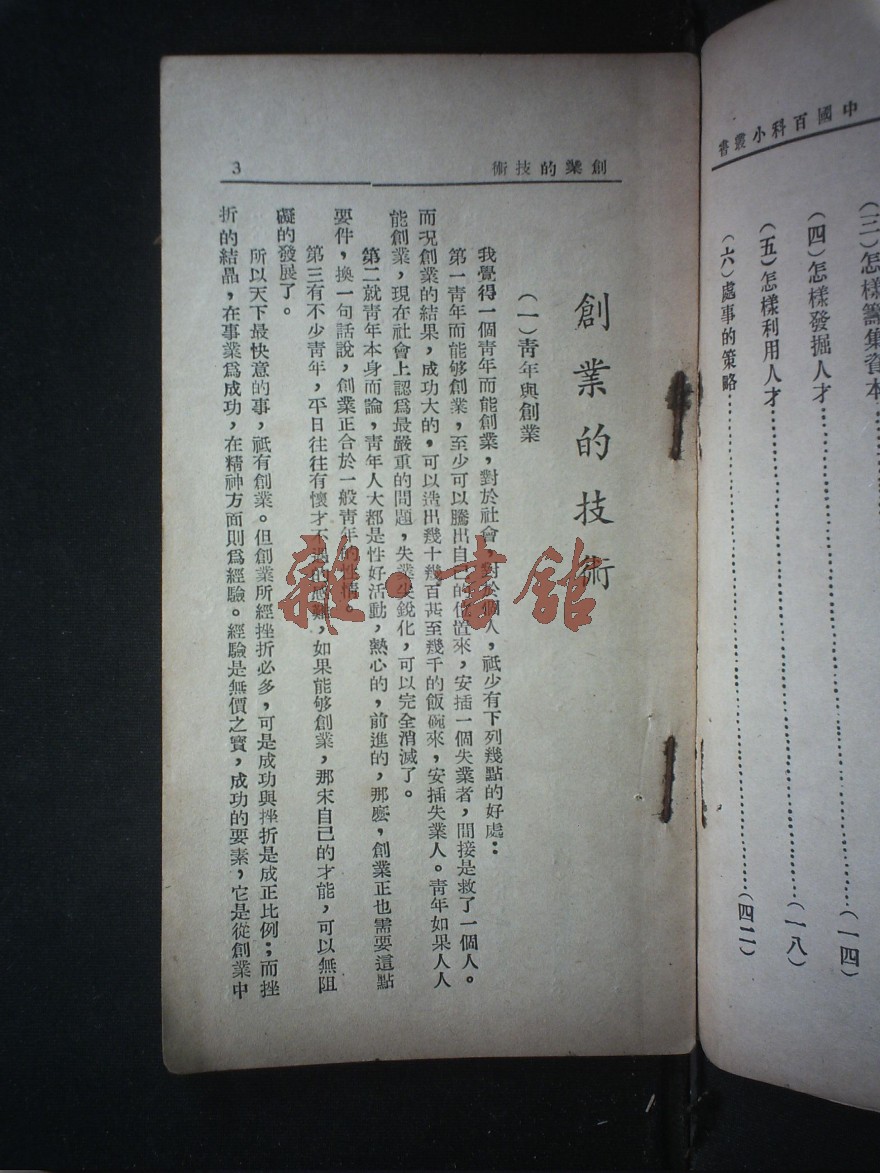 中國百科小叢書
(三)怎樣籌集資本
(四)怎樣發掘人才……(一四)
(五)怎樣利用人才……(一八)
(六)處事的策略……(四二)
創業的技術
3
創業的技術
(一)靑年與創業
我覺得一個靑年而能創業,對於社會,對於個人,祇少有下列幾點的好處:
第一靑年而能够創業,至少可以騰出自己的位置來,安插一個失業者,間接是救了一個人。
而况創業的結果,成功大的,可以造出幾十幾百甚至幾千的飯碗來,安插失業人。靑年如果人人
能創業,現在社會上認爲最嚴重的問題,失業尖銳化,可以完全消滅了。
第二就靑年本身而論,靑年人大都是性好活動,熱心的,前進的,那麽,創業正也需要這點
要件,換一句話說,創業正合於一般靑年的性情。
第三有不少靑年,平日往往有懷才不遇的感難,如果能够創業,那末自己的才能,可以無阻
礙的發展了。
所以天下最快意的事,祇有創業。但創業所經挫折必多,可是成功與挫折是成正比例;而挫
折的結晶,在事業爲成功,在精神方面則爲經驗。經驗是無價之寶,成功的要素,它是從創業中
雜·書館